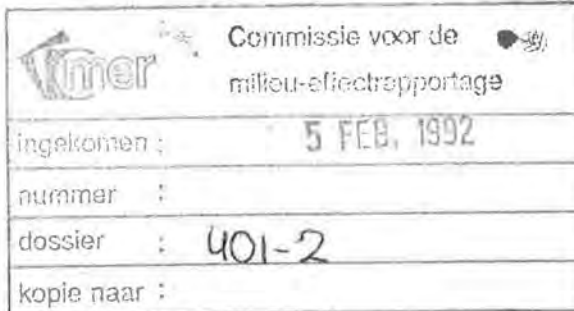 mer
Commissie voor de
milieu-effectrapportage
ingekomen : 5 FEB. 1992
nummer :
dossier : 401-2
kopie naar :